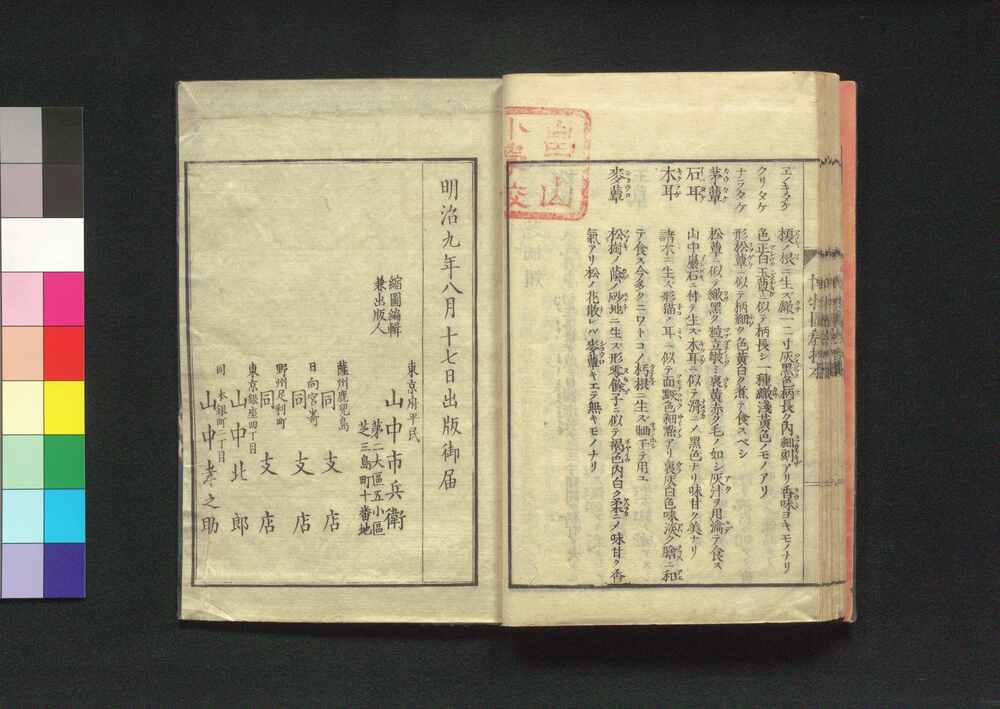 ヱノキタケ 榎ノ根ニ生ズ繖一二寸灰黑色柄長ク內細刻アリ香味ヨキモノナリ
クリタケ 色正白玉蕈ニ似テ柄長シ一種繖淺黃色ノモノアリ
ナラタケ 形松蕈ニ似テ柄細ク色黃白ク煮テ食スベシ
茅蕈 松蕈ニ似テ繖黑ク裏黃赤ク毛ノ如シ灰汁ヲ用瀹テ食ス
石耳 山中巖石ニ付テ生ズ木耳ニ似テ滑ニノ黑色ナリ味甘ク美ナリ
木耳 諸木ニ生ズ形猫ノ耳ニ似テ面黯色細齋アリ裏灰白色味淡ク膾ニ和
テ食ス今多クニワトコノ朽根ニ生ズ乾テ用ユ
麥蕈 松樹ノ蔭ノ砂地ニ生ズ形零餘子ニ似テ褐色內白ク柔ニノ味甘ク香
氣アリ松ノ花散レバ麥蕈キエテ無キモノナリ
山
小學校
明治九年八月十七日出版御届
縮圖編輯
兼出版人
東京府平民
山中市兵衛
第二大區五小區
芝三島町十番地
薩州鹿兒島
同支店
日向宮嵜
同支店
野州足利町
同支店
東京銀座四丁目
山中北郎
同本銀町二丁目
山中孝之助